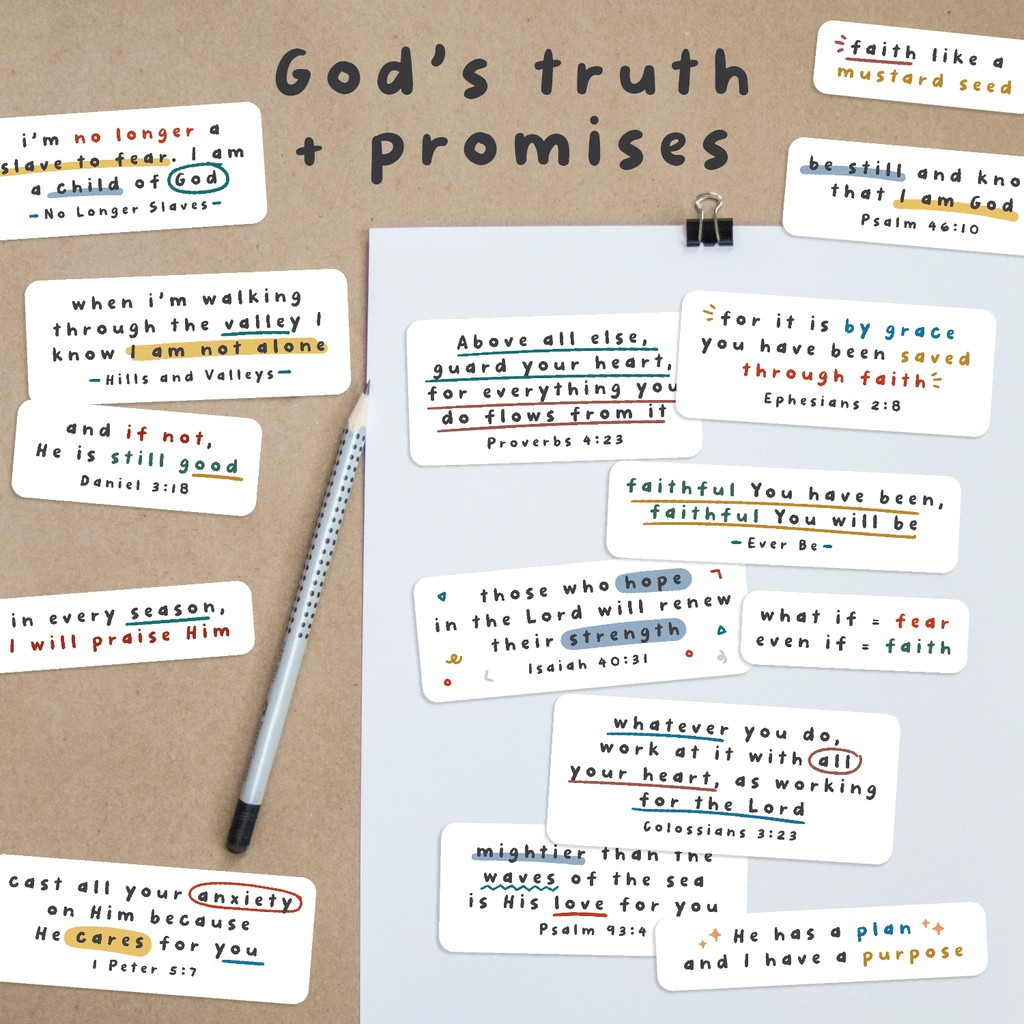 God's truth
+ promises
faith like a
mustard seed
i'm no longer a
slave to fear. I am
a child of God
-No Longer Slaves-
be still and kno
that I am God
Psalm 46:10
when i'm walking
through the valley I
know I am not alone
-Hills and Valleys-
Above all else,
guard your heart,
for everything you
do flows from it
Proverbs 4:23
for it is by grace
you have been saved
through faith
Ephesians 2:8
and if not,
He is still good
Daniel 3:18
faithful You have been,
faithful You will be
-Ever Be-
in every season,
I will praise Him
those who hope
in the Lord will renew
their strength
Isaiah 40:31
what if = fear
even if = faith
whatever you do,
work at it with all
your heart, as working
for the Lord
Colossians 3:23
mightier than the
waves of the sea
is His love for you
Psalm 93:4
cast all your anxiety
on Him because
He cares for you
1 Peter 5:7
He has a plan
and I have a purpose